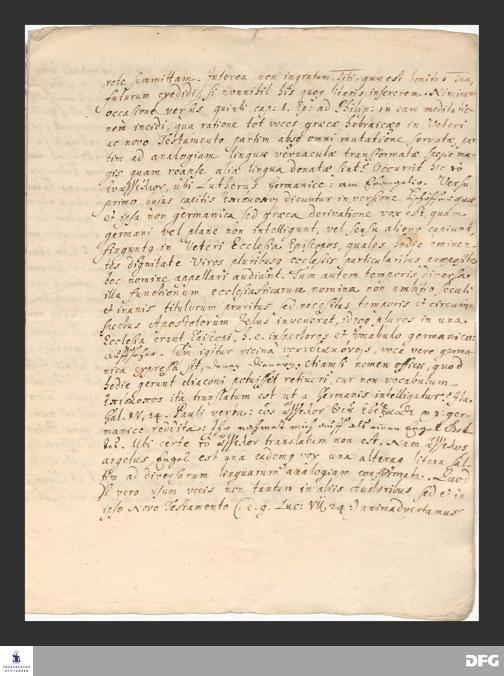 vole summittam. Interea non ingratum Tibi, quae est bonitas tua,
futurum credidi, si nonnihil his quoq literis insererem. Nimirum
occasione versus quinti cap: 1. Ep: ad Philip: in eam meditatio
nem incidi, qua ratione tot voces graecae hebraicaeq in Veteri
ac novo Testamento partim absq omni mutatione servatae, par
tim ad analogiam linguae vernaculae transformatae saepe ma
gis quam reapse alia lingua donatae sint. Occurrit hic τὸ
ubi Lutherus Germanice: am Evangelio. Versu
primo huius capitis dicuntur in versione quae
et ipsa non germanica sed graeca derivatione vox est, quam
germani vel plane non intelligunt, vel sensu alieno capiunt,
finguntq in Veteri Ecclesia Episcopos, quales hodie eminen-
tes dignitate Viros pluribusq ecclesiis particularibus praepositos
hoc nomine appellari audiunt. Tum autem temporis diversa
illa functionum ecclesiasticarum nomina non ambitio seculi
et inanis titulorum pruritus sed necessitas temporis et circum
spectus Apostolorum Zelus invenerat, ideoq plures in una
Ecclesia erant Episcopi, h. e. inspectores et vocabulo germanico:
Tum igitur vicina vox: διακόνοις, voce vero germa-
nica expressa sit, etiamsi nomen officii, quod
hodie gerunt diaconi potuisset retineri, cur non vocabulum
ἐπίσκοπος ita translatum est ut a Germanis intelligatur? Ita
Gal. IV, 14. Pauli verba: ὡς ἄγγελον θεοῦ ἐδέξασθέ με: ger-
manice reddita: Ihr nahmet mich auff als einen Engel
Ubi certe τὸ ἄγγελον translatum non est. Nam ἄγγελος
angelus, Engel est una eademq vox una alteraq litera sal-
tim ad diversarum linguarum analogiam conformata. Quod
si vero usum vocis non tantum in aliis autoribus sed et in
ipso Novo Testamento (: e. g. Luc: VII, 24 :) animadvertamus
FRANCKESCHE
STIFTUNGEN
DFG